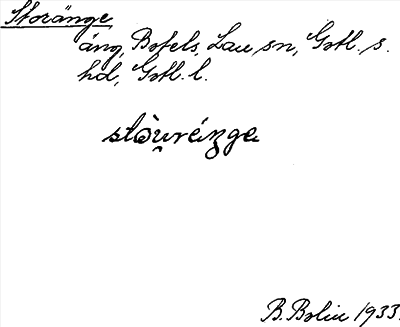 Storänge
äng, Botels, Lau sn, Gotl. s.
hd, Gotl. l.
stòu̯réŋge
B. Bolin 1933.